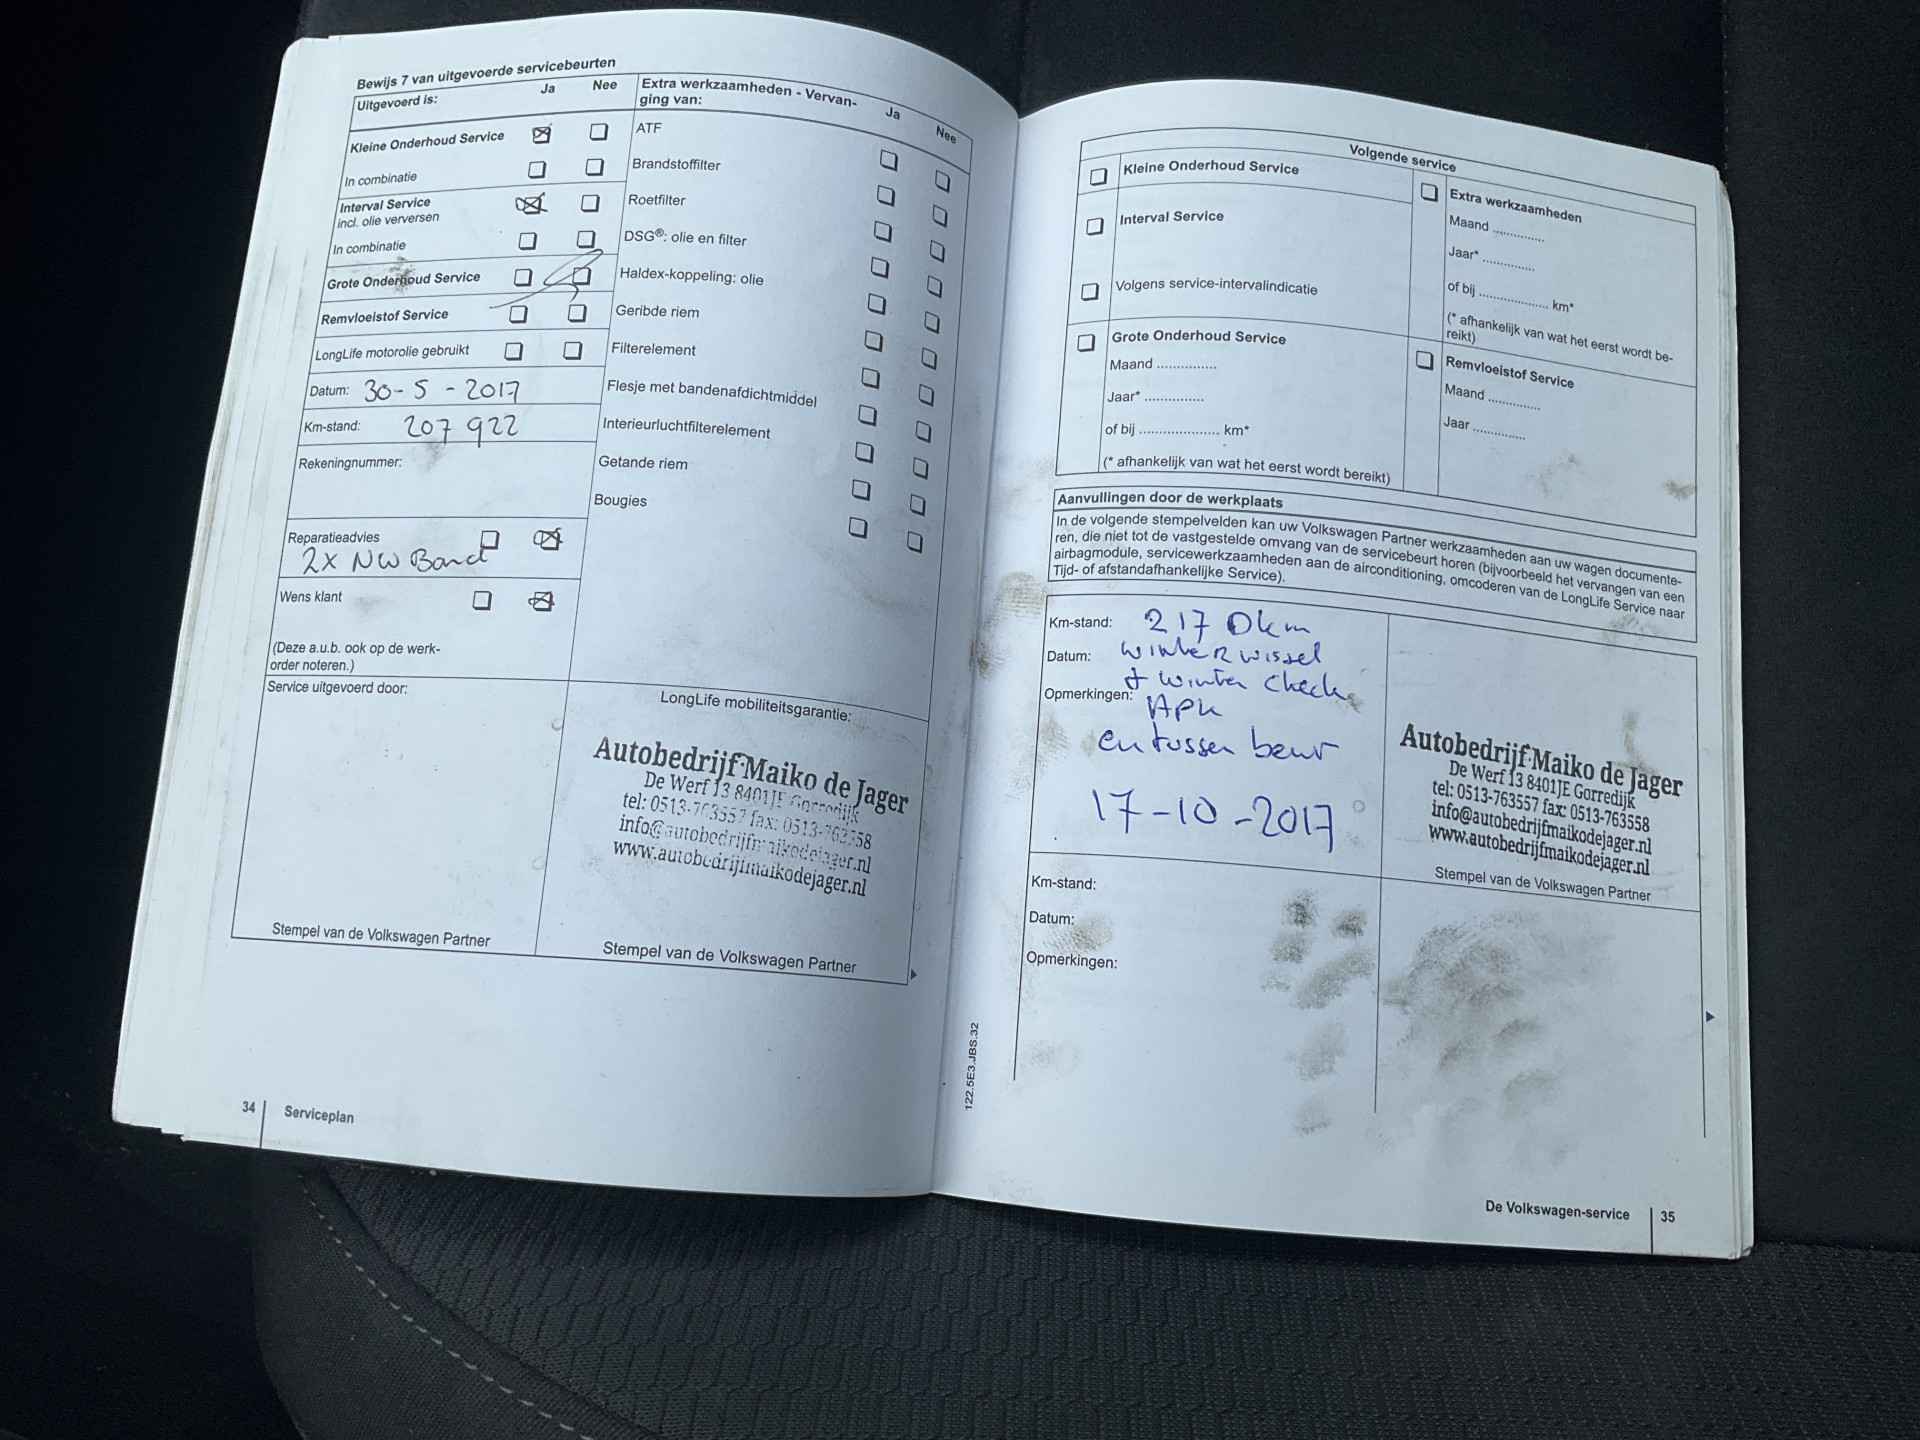 Bewijs 7 van uitgevoerde servicebeurten
Uitgevoerd is:
Ja
Nee
Kleine Onderhoud Service
In combinatie
Interval Service
incl. olie verversen
In combinatie
Grote Onderhoud Service
Remvloeistof Service
LongLife motorolie gebruikt
Datum: 30-5-2017
Km-stand: 207 922
Rekeningnummer:
Reparatieadvies
2x NW Band
Wens klant
(Deze a.u.b. ook op de werk-
order noteren.)
Extra werkzaamheden - Vervan-
ging van:
Ja
Nee
ATF
Brandstoffilter
Roetfilter
DSG®: olie en filter
Haldex-koppeling: olie
Geribde riem
Filterelement
Flesje met bandenafdichtmiddel
Interieurluchtfilterelement
Getande riem
Bougies
Service uitgevoerd door:
Stempel van de Volkswagen Partner
LongLife mobiliteitsgarantie:
Autobedrijf Maiko de Jager
De Werf 13 8401JE Gorredijk
tel: 0513-763557 fax: 0513-763558
info@autobedrijfmaikodejager.nl
www.autobedrijfmaikodejager.nl
Stempel van de Volkswagen Partner
34
Serviceplan
Volgende service
Kleine Onderhoud Service
Interval Service
Volgens service-intervalindicatie
Grote Onderhoud Service
Maand ...............
Jaar* ...............
of bij .................... km*
(* afhankelijk van wat het eerst wordt bereikt)
Extra werkzaamheden
Maand .............
Jaar* .............
of bij .................. km*
(* afhankelijk van wat het eerst wordt be-
reikt)
Remvloeistof Service
Maand .............
Jaar .............
Aanvullingen door de werkplaats
In de volgende stempelvelden kan uw Volkswagen Partner werkzaamheden aan uw wagen documente-
ren, die niet tot de vastgestelde omvang van de servicebeurt horen (bijvoorbeeld het vervangen van een
airbagmodule, servicewerkzaamheden aan de airconditioning, omcoderen van de LongLife Service naar
Tijd- of afstandafhankelijke Service).
Km-stand: 217 0km
Datum: winter wissel
+ winter check
Opmerkingen: APK
en tussen beurt
17-10-2017
Autobedrijf Maiko de Jager
De Werf 13 8401JE Gorredijk
tel: 0513-763557 fax: 0513-763558
info@autobedrijfmaikodejager.nl
www.autobedrijfmaikodejager.nl
Stempel van de Volkswagen Partner
Km-stand:
Datum:
Opmerkingen:
122.5E3.JBS.32
De Volkswagen-service
35